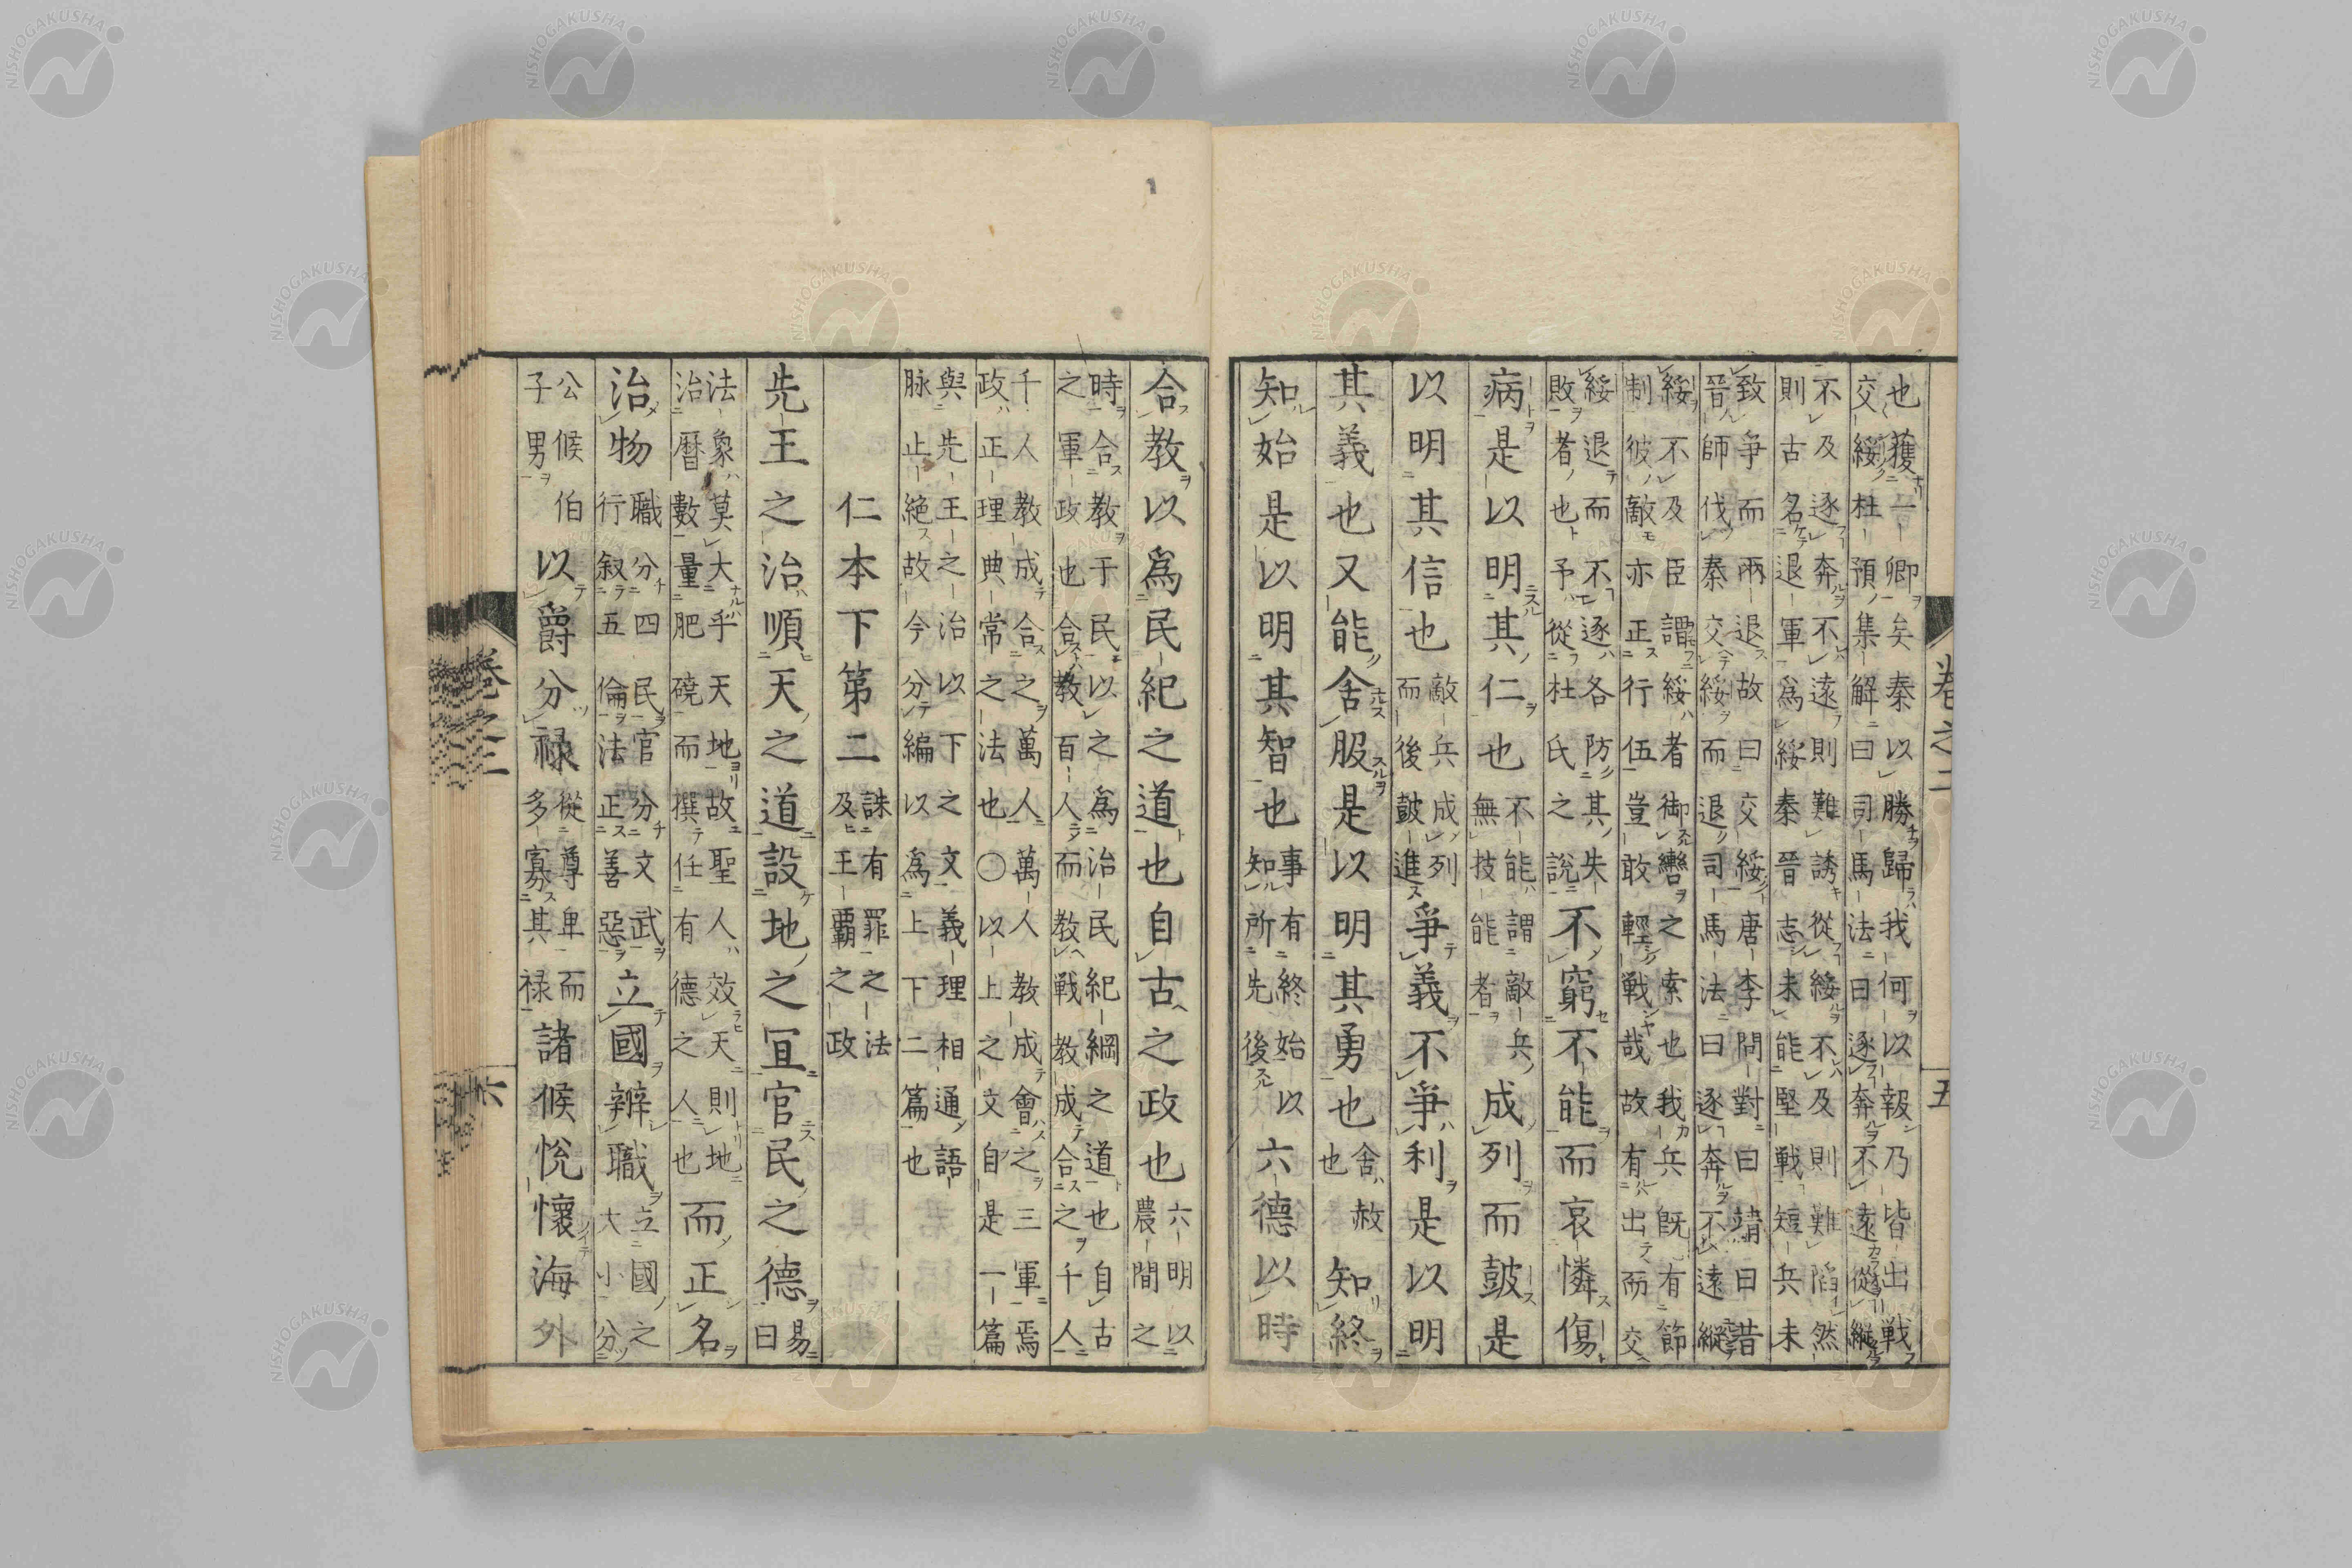 卷之二
五
也獲一卿矣秦以勝歸我何以報乃皆出戰
交綏杜預集解曰司馬法曰逐奔不遠從縱
不及逐奔不遠則難誘從綏不及則難陷然
則古名退軍爲綏秦晉志未能堅戰短兵未
致爭而兩退故曰交綏唐李問對曰靖曰昔
晉師伐秦交綏而退司馬法曰逐奔不遠縱
綏不及臣謂綏者御轡之索也我兵既有節
制彼敵亦正行伍豈敢輕戰哉故有出而交
綏退而不逐各防其失
敗者也予從杜氏之說
不窮不能而哀憐傷
病是以明其仁也
不能謂敵兵
無技能者
成列而鼓是
以明其信也
敵兵成列
而後鼓進
爭義不爭利是以明
其義也又能舍服是以明其勇也
舍赦
也
知終
知始是以明其智也
事有終始以
知所先後
六德以時
合教以爲民紀之道也自古之政也
六明以
農間之
時合教于民以之爲治民紀綱之道也自古
之軍政也合教百人而教戰教成合之千人
千人教成合之萬人萬人教成會之三軍焉
政正理典常之法也〇以上之文自是一篇
與先王之治以下之文義理相通語
脉止絶故今分編以爲上下二篇也
仁本下第二
誅有罪之法
及王覇之政
先王之治順天之道設地之冝官民之德
易
曰
法象莫大乎天地故聖人效天則地
治曆數量肥磽而撰任有德之人也
而正名
治物
職分四民官分文武
行叙五倫法正善惡
立國辨職
立國之
大小分
公候伯
子男
以爵分禄
從尊卑而
多寡其禄
諸候悅懷海外
卷之二
六
NISHOGAKUSHA